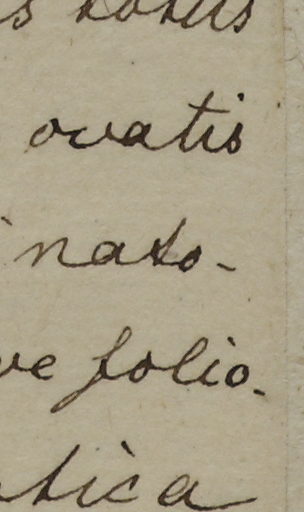 ovatis
nato-
ve folio-
tica